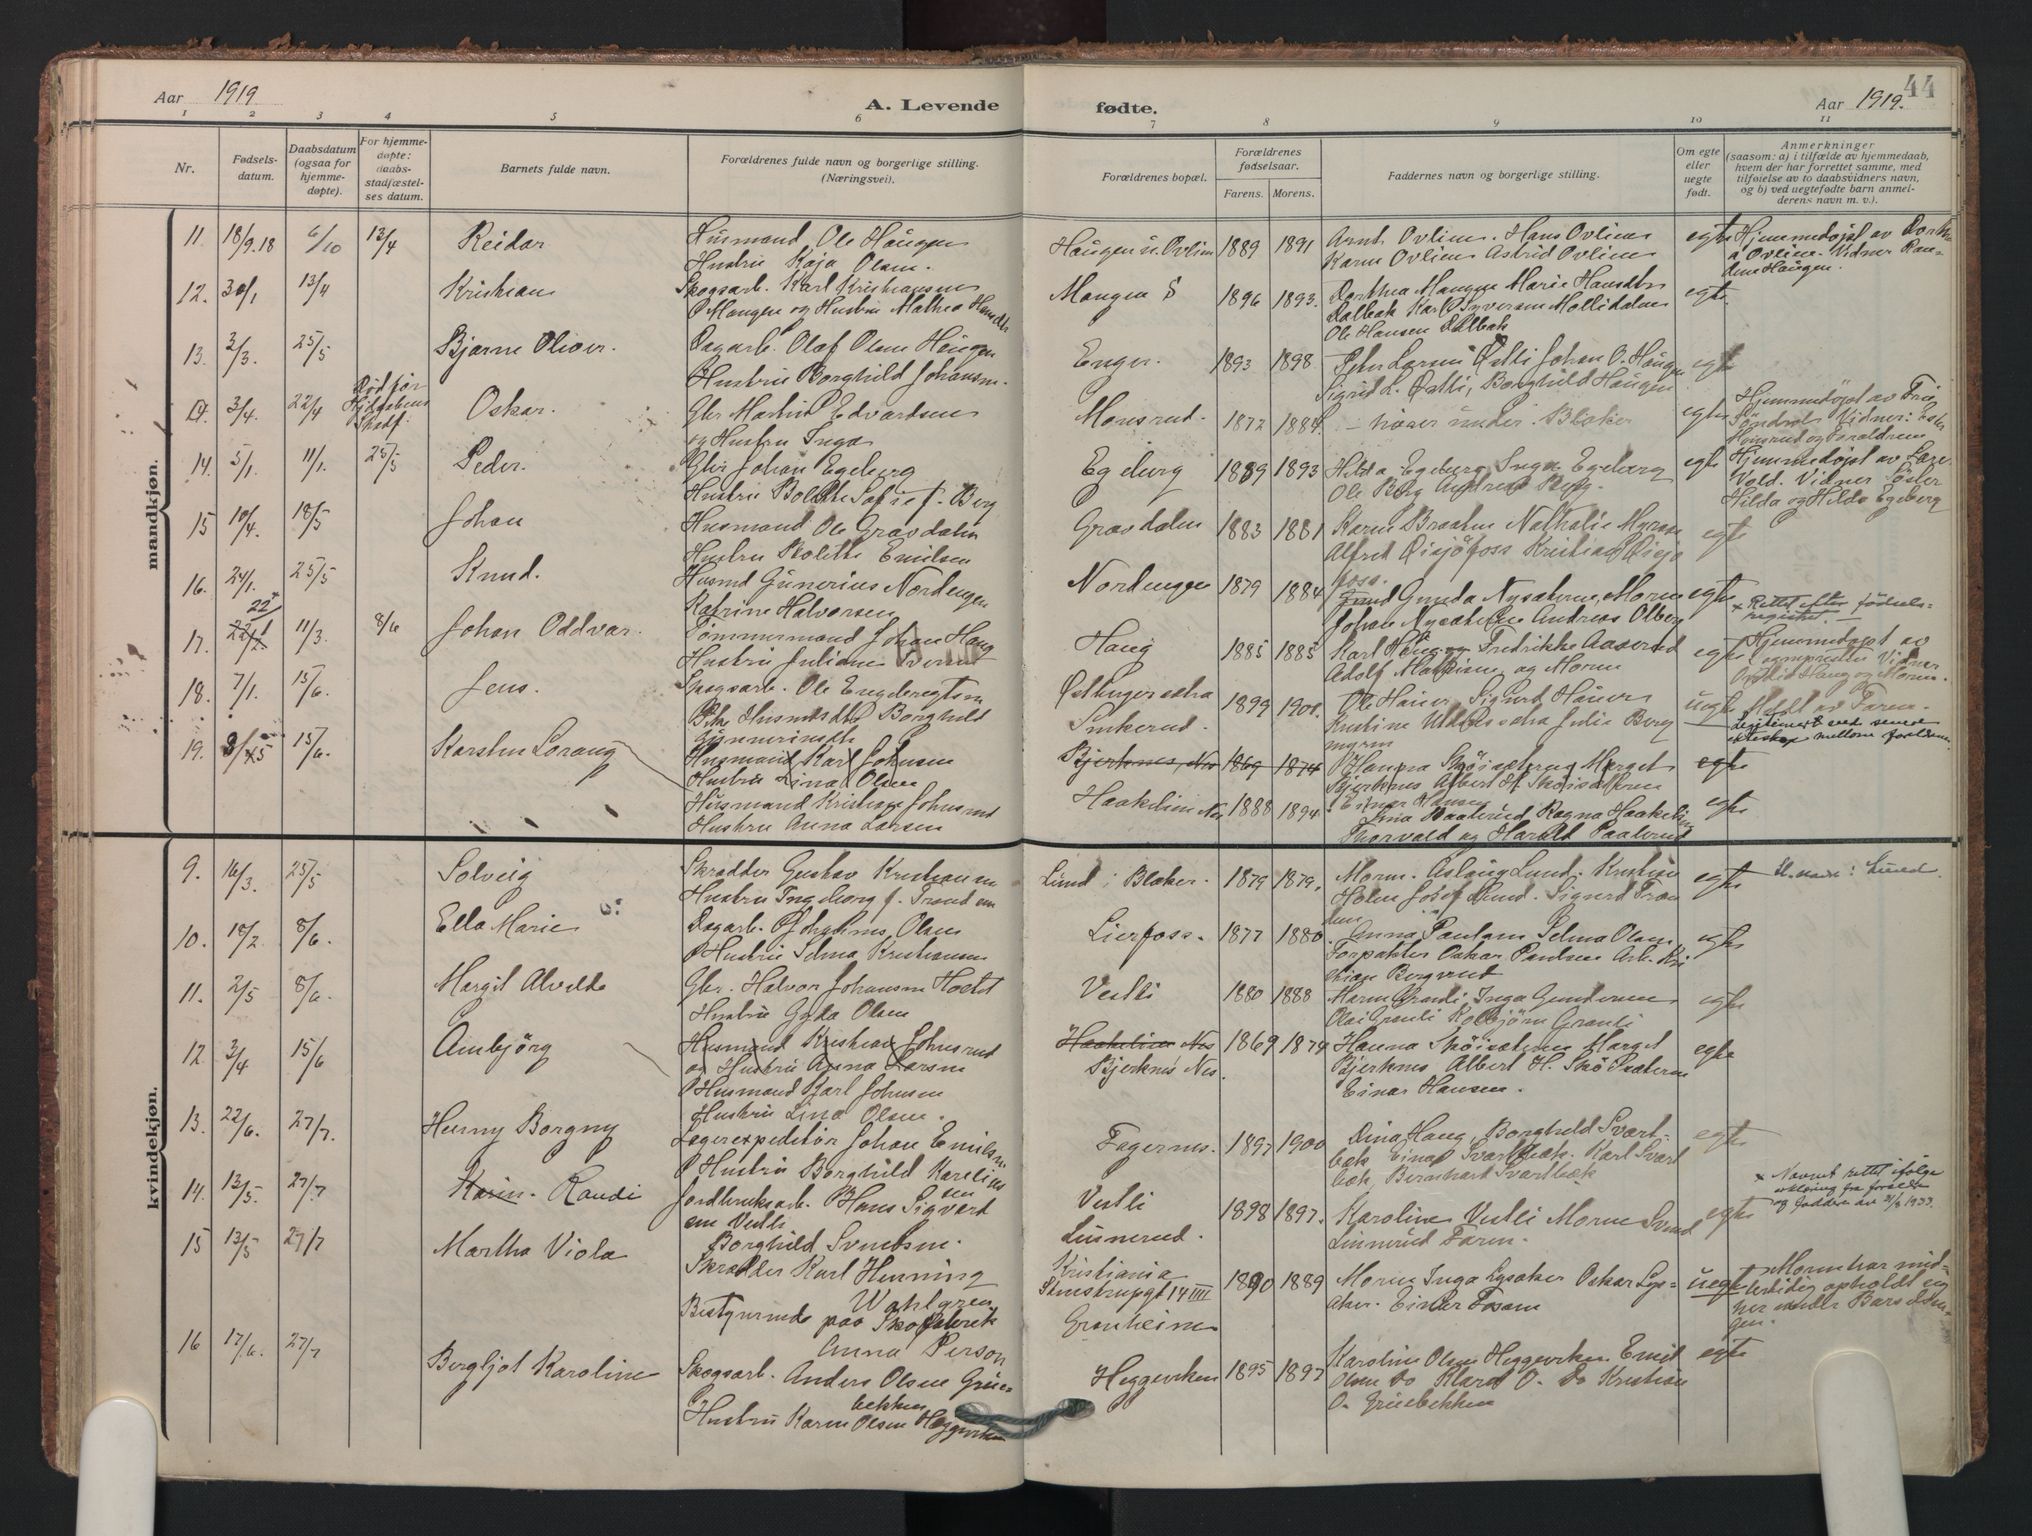 Aar 1919
A. Levende
fødte.
Aar 1919.
44
1 2 3 4 5 6 7 8 9 10 11
Nr.
Fødsels-
datum.
Daabsdatum
(ogsaa for
hjemme-
døpte).
For hjemme-
døpte:
daabs-
stadfæstel-
ses datum.
Barnets fulde navn.
Forældrenes fulde navn og borgerlige stilling.
(Næringsvei).
Forældrenes bopæl.
Forældrenes
fødselsaar.
Farens. Morens.
Faddernes navn og borgerlige stilling.
Om egte
eller
uegte
født.
Anmerkninger
(saasom: a) i tilfælde av hjemmedaab,
hvem der har forrettet samme, med
tilføielse av to daabsvidners navn,
og b) ved uegtefødte barn anmel-
derens navn m. v.).
mandkjøn.
11 18/9.18 6/10 13/4 Reidar
Husmand Ole Haugen
Hustru Kaja Olsen.
Haugen u. Ovlien 1889 1891
Arnt Ovlien. Hans Ovlien
Karen Ovlien Astrid Ovlien
egte
Hjemmedøpt av
Ovlien. Vidner
Haugen.
12. 30/1 13/4 Kristian
Skogsarb. Karl Kristiansen
Mangen og Hustru Mathea
Mangen S 1896 1893.
Dorthea Mangen Marie Hansdtr
Dalbak Karl Syversen Mollidalen
Ole Hansen Dalbak
egte
13. 3/3. 25/5 Bjarne Oliver.
Dagarb. Olaf Olsen Haugen
Hustru Borghild Johansen.
Enger. 1893 1898.
Peter Larsen Østli Johan O. Haugen
Sigrid L. Østli, Borghild Haugen
egte
14. 3/4. 22/4 Oskar.
Gbr Martin Edvardsen
og Hustru Inga
Monsrud. 1872 1884.
under Blaker
egte
Hjemmedøpt av
Vidner:
Monsrud og Forældrene
14. 5/1. 11/1. 25/5 Peder.
Gbr Johan Egeberg
Hustru Bolette Sofie f. Berg
Egeberg 1889 1893
Hilda Egeberg Inga Egeberg
Ole Berg Andreas Berg.
egte
Hjemmedøpt av
Vold. Vidner
Hilda og Hilda Egeberg
15 10/4. 18/5 Johan
Husmand Ole Gravdalen
Hustru Kolette Emilsen
Gravdalen 1883 1881
Karen Braaten Nathalie
Alfred Kristian
foss.
egte
16. 24/1. 25/5 Knud.
Husmd Gunerius Nordengen
Katrine Halvorsen
Nordengen 1879 1884
Gunda Nysæterne, Moren
Johan Nysæteren Andreas Olberg
egte
× Rettet efter fødsels-
registret.
17. 22/2 11/3. 8/6 Johan Oddvar.
Tømmermand Johan Haug
Hustru Juliane
Haug 1885 1885
Karl Haug Fredrikke Aaserud
Adolf Mathisen og Moren
egte
Hjemmedøpt av
Vidner
Haug og Moren.
18. 7/1. 15/6. Jens.
Skogsarb. Ole Engebretsen
Pike Husmdsdt. Borghild
Gunnerinsdt
1899 1900.
Ole Hauer Sigurd Hauer
Kristine Julie Berg
myren
uegte
Meldt av Faren.
Legitimert ved senere
ekteskap mellom foreldrene.
19. 15/6. Karsten Lorang
Husmand Karl Johnsen
Hustru Lina Olsen
Husmand Kristian Johnsrud
Hustru Anna Larsen
Bjerknes, Nes 1869 1874
Haakelien Nes 1888 1894
Hanna Skøisæteren Marget
Bjerknes Albert H. Skøisæteren
Einar Hansen
Lina Paalerud Ragna Haakelien
Thorvald og Harald Paalerud
egte
egte
kvindekjøn.
9. 16/3. 25/5 Solveig
Skrædder Gustav Kristiansen
Hustru Ingeborg f. Tranden
Lund i Blaker. 1879 1879.
Moren. Aslaug Lund. Kristian
Holm Josef Lund. Sigurd Tran
den
egte
Sl. navn: Lund.
10. 18/2 8/6. Ella Marie
Dagarb. Johannes Olsen
Hustru Selma Kristiansen
Lierfoss. 1877 1880.
Anna Paulsen Selma Olsen
Forpakter Oskar Paulsen Arb. Kri
stian Bergerud
egte
11. 2/5 8/6. Margit Alvilde
Gbr. Halvor Johansen
Hustru Gyda Olsen
Vestli 1880 1888
Maren Granli Inga Gundersen
Olai Granli Kolbjørn Granli
egte
12. 3/4 15/6 Ambjørg
Husmand Kristian Johnsrud
og Hustru Anna Larsen
Husmand Karl Johnsen
Hustru Lina Olsen.
Haakelien Nes 1869 1874
Bjerknes Nes.
Hanna Skøisæteren Marget
Bjerknes Albert H. Skøisæteren
Einar Hansen.
egte
13. 22/6. 27/7. Henny Borgny
Lagerexpeditør Johan Emilsen
Hustru Borghild Karelius
sen
Fagernes. 1897 1900
Dina Haug, Borghild Svart-
bæk Einar Svartbæk. Karl Svart
bæk, Bernhart Svartbæk
egte
14. 13/5. 27/7. Karin. Randi
Jordbruksarb. Hans Sigvart
sen Vestli
Borghild Svendsen.
Vestli
Linnerud. 1898 1897.
Karoline Vestli Moren Svend
Linnerud Faren.
egte
× Navnet rettet ifølge
erklæring fra foreldre
og faddere av 31/8 1933.
15 13/5 27/7 Martha Viola
Skrædder Karl Henning
Wahlgren
Bestyrerinde paa Skofabrik
Anna Person
Kristiania
Stenstrupgt 14 IIII
Granheim
1890 1889
Moren Inga Lysaker Oskar Lys-
aker. Einer Fosem
uegte
Moren har mid-
lertidig opholdt sig
her under Barselsen-
gen.
16 17/6. 27/7 Bergljot Karoline
Skogsarb. Anders Olsen Grue-
bekken
Hustru Karen Olsen Heggerviken
Heggerviken 1895 1897
Karoline Olsen Heggerviken Emil
Olsen do Klara O. do Kristian
O. Gruebekken
egte